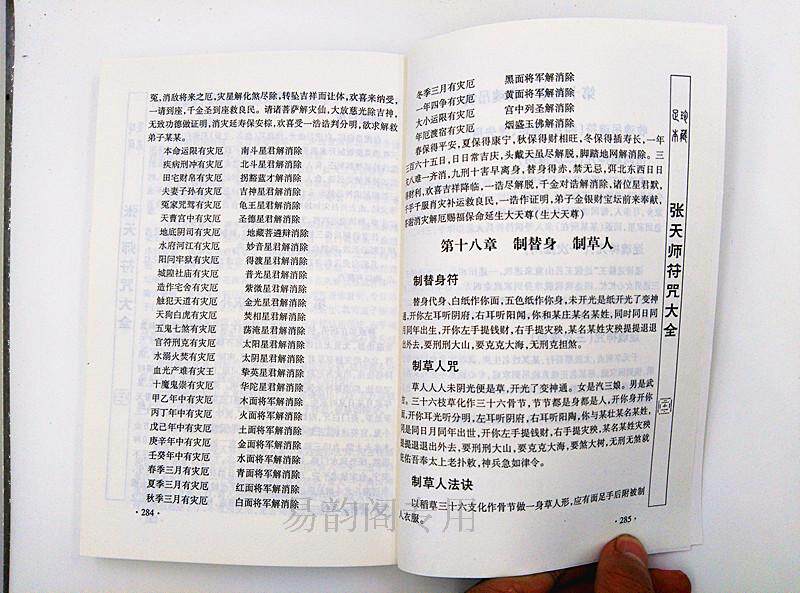 冤,消敌将来之厄,灾星解化煞尽除,转坠吉祥而让体,欢喜来纳受,
一请到座,千金圣到座救良民。请诸菩萨解灾仙,大放慈光除吉神,
无致功德做证明,消灾延寿保安棕,欢喜受一浩诰判分明,欲求解救
弟子某某。
本命运限有灾厄 南斗星君解消除
疾病刑冲有灾厄 北斗星君解消除
田宅财帛有灾厄 拐豁蓝才解消除
夫妻子孙有灾厄 吉神星君解消除
冤家咒骂有灾厄 龟王星君解消除
天曹宫中有灾厄 圣德星君解消除
地底阴司有灾厄 地藏菩遴辩消除
水府河江有灾厄 妙音星君解消除
阳间牢狱有灾厄 得渡星君解消除
城隍社庙有灾厄 普光星君解消除
造作宅舍有灾厄 紫微星君解消除
触犯天道有灾厄 金光星君解消除
天狗白虎有灾厄 焚相星君解消除
五鬼七煞有灾厄 荡淹星君解消除
官符刑克有灾厄 太阳星君解消除
水溺火焚有灾厄 太阴星君解消除
血光产难有灾王 挚英星君解消除
十魔鬼祟有灾厄 华陀星君解消除
甲乙年中有灾厄 木面将军解消除
丙丁年中有灾厄 火面将军解消除
戊己年中有灾厄 土面将军解消除
庚辛年中有灾厄 金面将军解消除
壬癸年中有灾厄 水面将军解消除
春季三月有灾厄 青面将军解消除
夏季三月有灾厄 红面将军解消除
秋季三月有灾厄 白面将军解消除
·284·
冬季三月有灾厄 黑面将军解消除
一年四争有灾厄 黄面将军解消除
大小运限有灾厄 宫中列圣解消除
年厄渡宿有灾厄 烟盛玉佛解消除
春保得平安,夏保得康宁,秋保得财相旺,冬保得插寿长,一年
三百六十五日,日日常吉庆,头戴天虽尽解脱,脚踏地网解消除。三
灾八难一齐消,九刑十害早离身,替身得赤,禁无忌,弭北东西日日
得财利,欢喜吉祥降临,一诰尽解脱,千金对诰解消除,诸位星君默,
千手千服肖灾补运救良民,一诰作证明,弟子金银财宝坛前来奉献,
消灾解厄赐福保命延生大天尊(生大天尊)
第十八章 制替身 制草人
制替身符
替身代身,白纸作你面,五色纸作你身,未开光是纸开光了变神
通,开你左耳听阴府,右耳听阳闻,你和某庄某名某姓,同时同日同
月同年出生,开你左手提钱财,右手提灾殃,某名某姓灾殃提提退退
出外去,要刑刑大山,要克克大海,无刑克担煞。
制草人咒
草人人人未阴光便是草,开光了变神通。女是汽三娘。男是武
吉。三十六枝草化作三十六骨节,节节都是身都是人,开你身开你
面,开你耳光听分明,左耳听阴府,右耳听阳陶,你与某壮某名某姓,
同是同日月同年出世,开你左手提钱财,右手提灾殃,某名某姓灾殃
提提退退出外去,要刑刑大山,要克克大海,要煞大树,无刑无煞就
佑吾奉太上老扑敕,神兵急如律令。
制草人法诀
以稻草三十六支化作骨节做一身草人形,应有面足手后附被制
人衣服。
·285·
珍藏
足本
张天师符咒大全
易韵阁专用